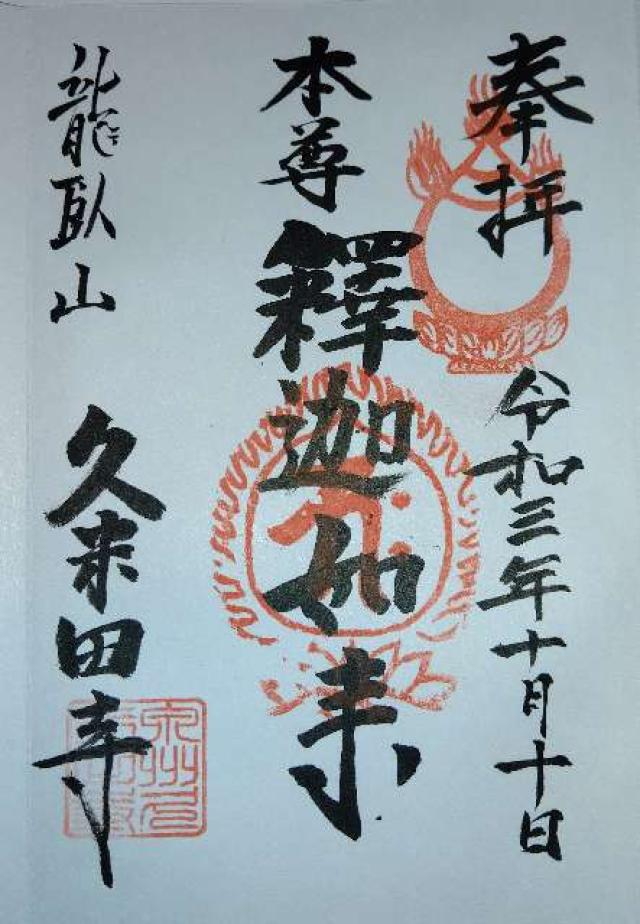 奉拝
令和三年十月十日
本尊
釋迦如来
龍臥山
久米田寺